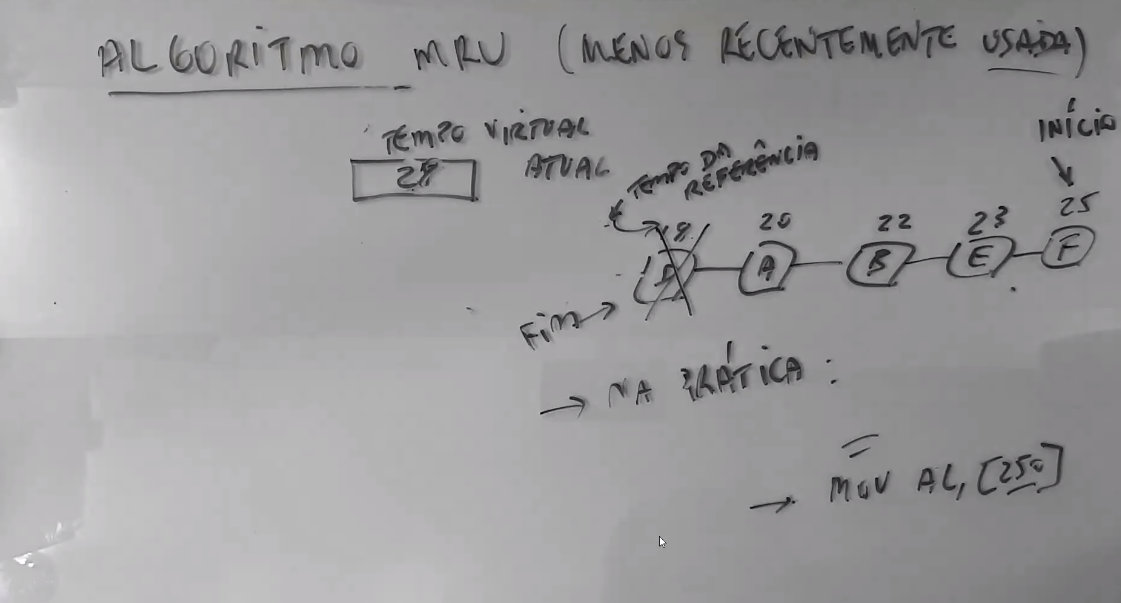 ALGORITMO MRU (MENOS RECENTEMENTE USADA)
TEMPO VIRTUAL
ATUAL
TEMPO DA
REFERÊNCIA
INÍCIO
20 22 23 25
A B E F
FIM
→ NA PRÁTICA :
→ MOV AL, [250]